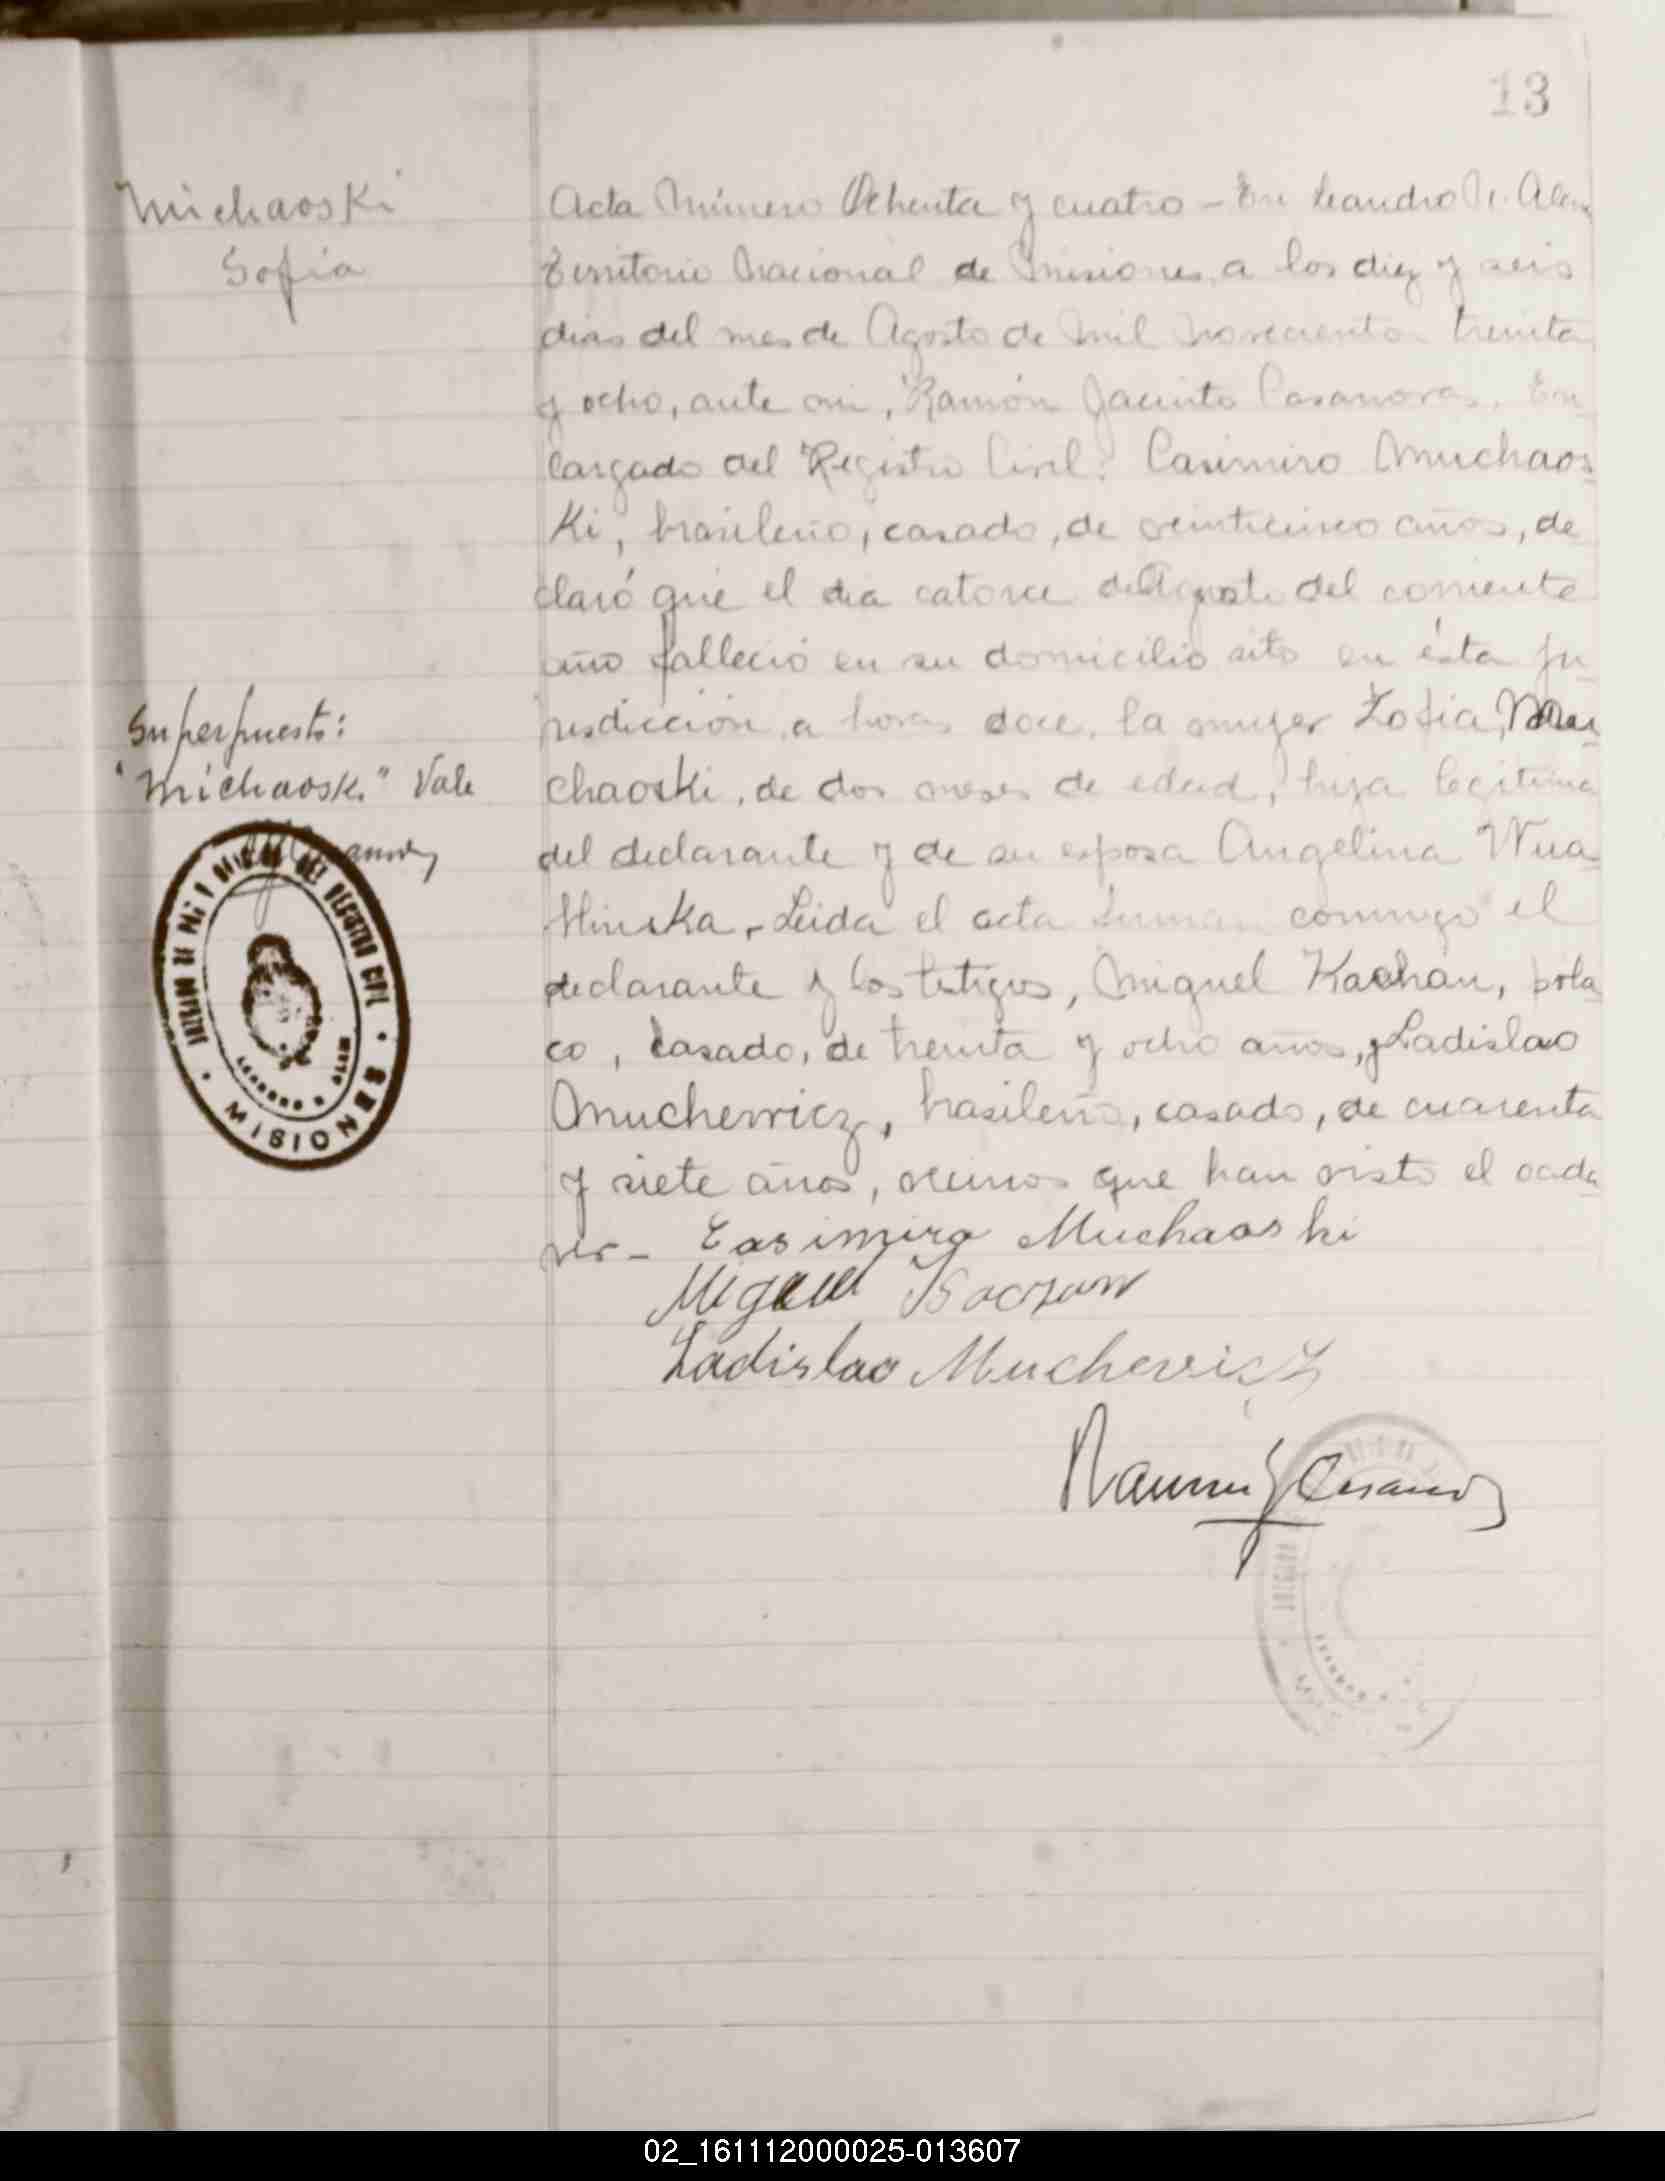 13
Michaoski
Sofia
Acta Número Ochenta y cuatro - En Leandro N. Alem
Territorio Nacional de Misiones, a los diez y seis
dias del mes de Agosto de mil novecientos treinta
y ocho, ante mi, Ramón Jacinto Casanovas, En
cargado del Registro Civil: Casimiro Muchaos-
Ki, brasileño, casado, de veinticinco años, de
claró que el dia catorce de Agosto del corriente
año falleció en su domicilio sito en ésta ju-
risdicción, a horas doce, la mujer Zofia,
chaoski, de dos meses de edad, hija legítima
del declarante y de su esposa Angelina Wua-
hlinska.- Leida el acta firman conmigo el
declarante y los testigos, Miguel Kachan, pola-
co, casado, de treinta y ocho años, y Ladislao
Muchewicz, brasileño, casado, de cuarenta
y siete años, vecinos que han visto el cada-
ver.-
Superpuesto:
"Michaoski" Vale
MISIONES
Casimiro Muchaoski
Miguel
Ladislao Muchevicz
Ramon J Casanovas
02_161112000025-013607